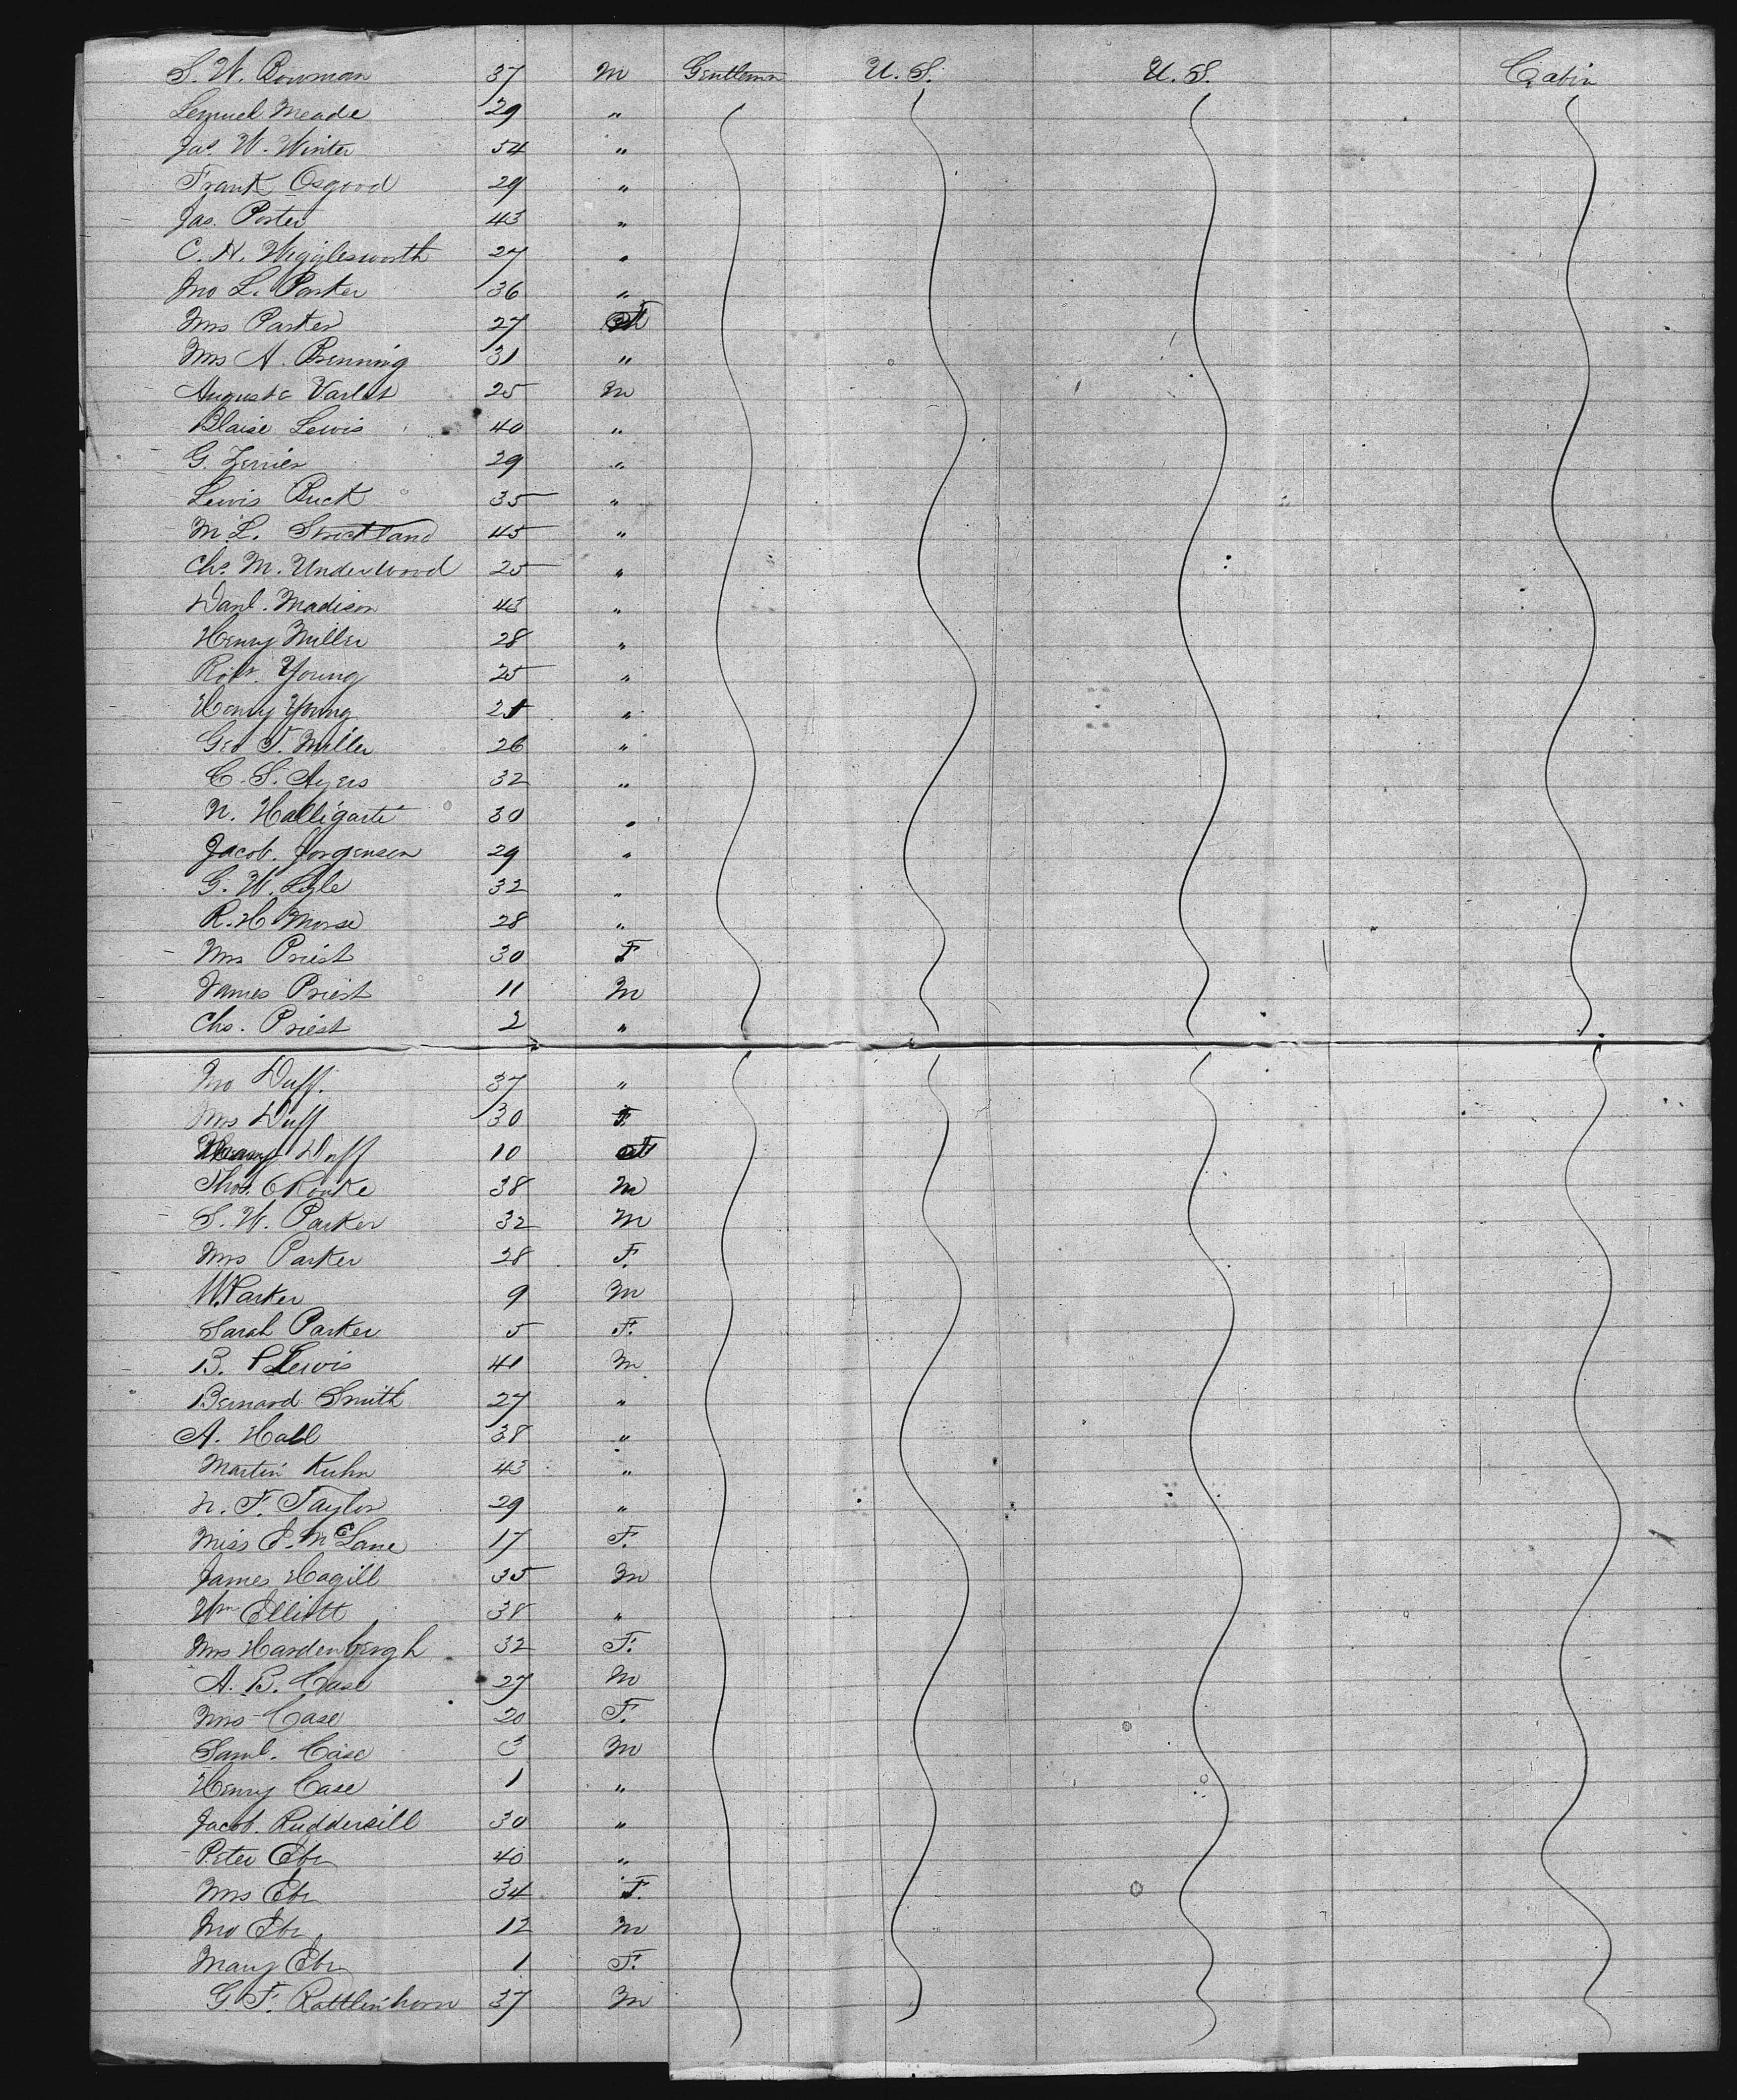 S. W. Bowman 37 M Gentleman U. S. U. S. Cabin
Lemuel Meade 29 "
Jas. W. Winter 54 "
Frank Osgood 29 "
Jas. Porter 43 "
C. H. Wigglesworth 27 "
Jno L. Parker 36 "
Mrs Parker 27
Mrs A. Brenning 31 "
Auguste Varlet 25 M
Blaise Lewis 40 "
G. 29 "
Lewis Buck 35 "
M. L. Strickland 45 "
Chs. M. Underwood 25 "
Danl. Madison 43 "
Henry Miller 28 "
Robt. Young 25 "
Henry Young "
Geo T. Miller 26 "
C. S. Ayers 32 "
N. Halligarti 30 "
Jacob. Jorgensen 29 "
G. W. Lyle 32 "
R. H Morse 28 "
Mrs Priest 30 F
James Priest 11 M
Chs. Priest 2 "
Jno Duff. 37 "
Mrs Duff 30 F.
Duff 10
Thos. O Rouke 38 M
S. W. Parker 32 M
Mrs Parker 28 F.
W. Parker 9 M
Sarah Parker 5 F.
B. P Lewis 41 M
Bernard Smith 27 "
A. Hall 38 "
Martin Kuhn 43 "
N. F. Taylor 29 "
Miss E. McLane 17 F.
James Hagill 35 M
Wm Elliott 38 "
Mrs Hardenbergh 32 F.
A. B. Case 27 M
Mrs Case 20 F.
Saml. Case 3 M
Henry Case 1 "
Jacob. Ruddersill 30 "
Peter Ebr 40 "
Mrs Ebr 34 F.
Jno Ebr 12 M
Mary Ebr 1 F.
G. F. Rattlinhorn 37 M